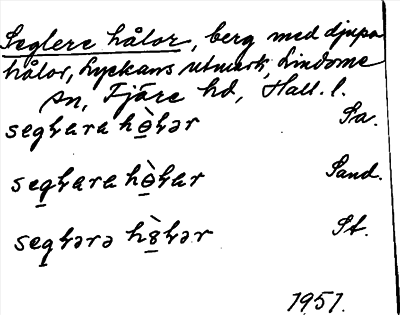 Seglere hålor, berg med djupa
hålor, Lyckans utmark, Lindome
sn, Fjäre hd, Hall. l.
segꞎara hɵ̀ꞎər Sa.
segꞎara hɵ̀ꞎar Sand.
segꞎərə hɵ̀ꞎər St.
1951.